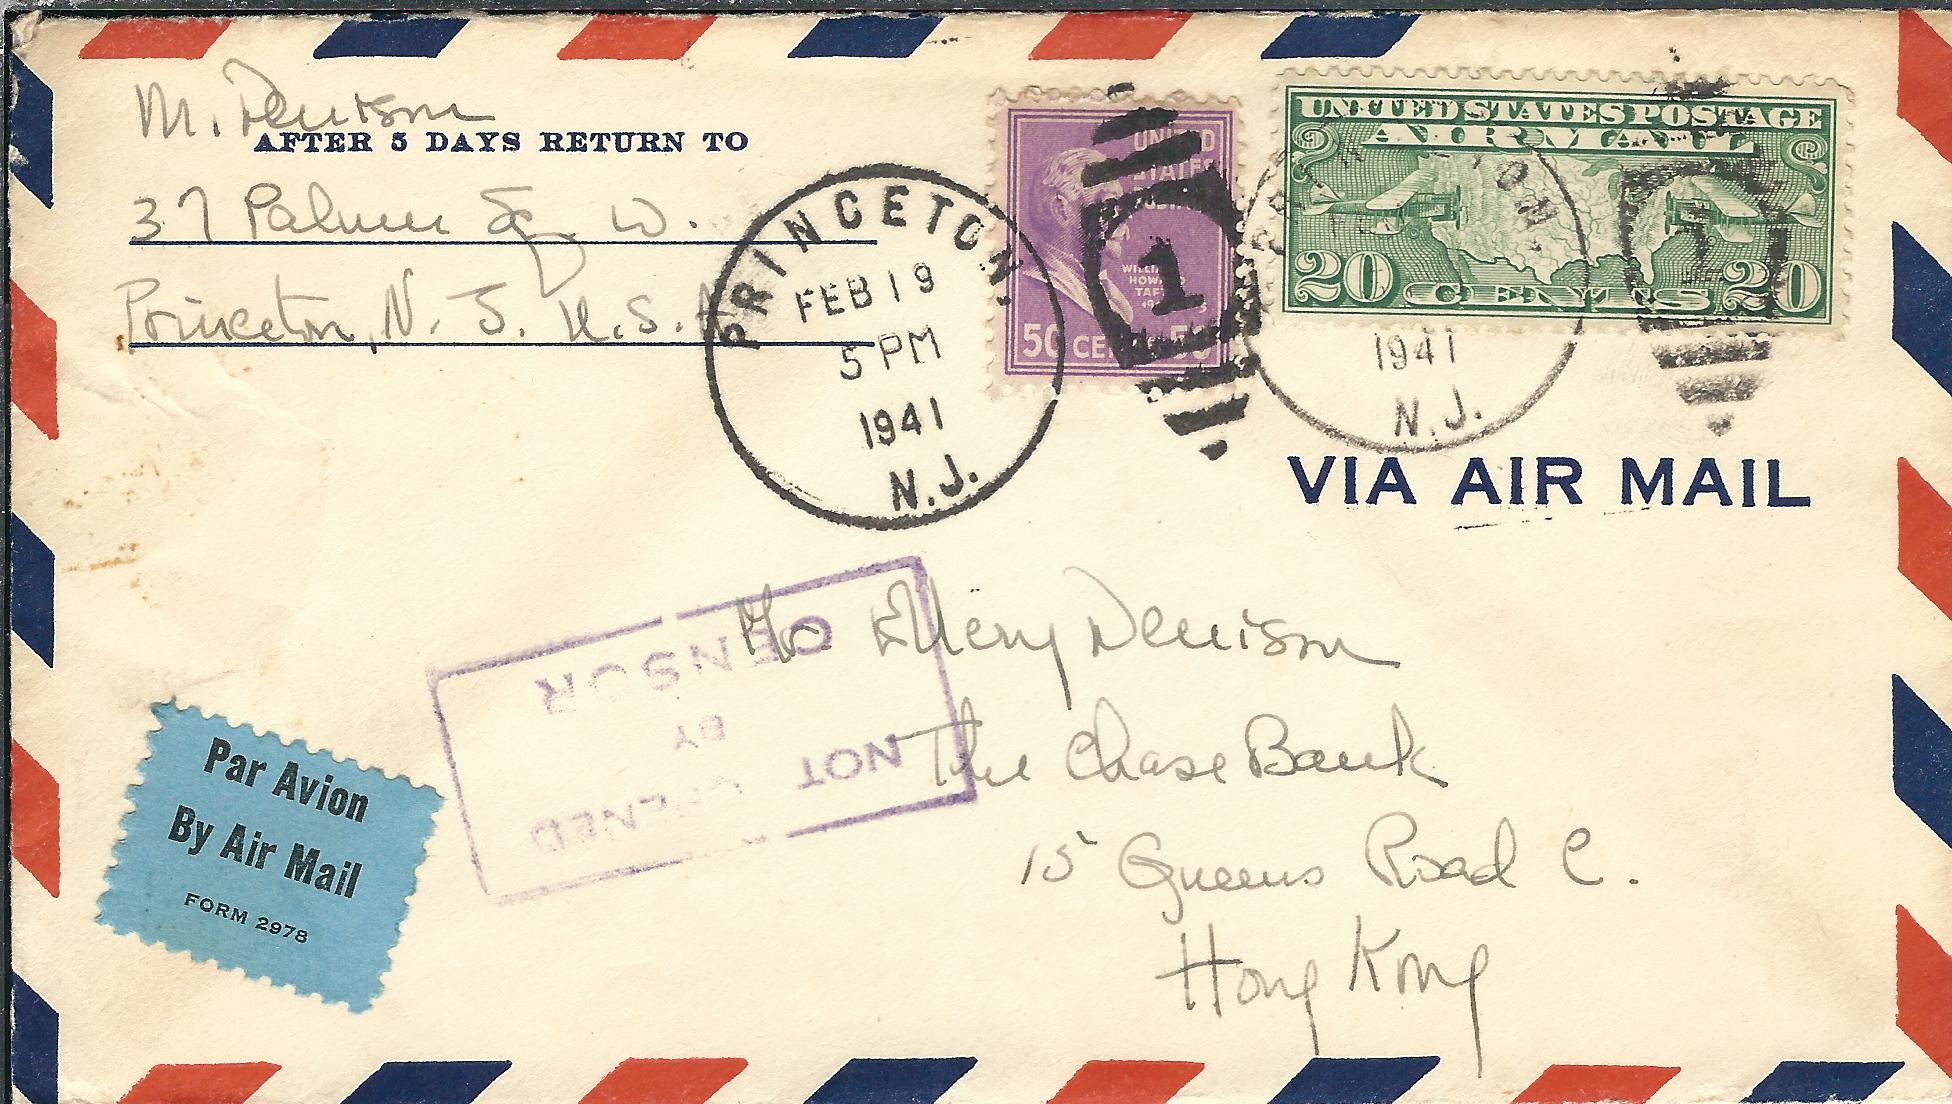 M. Denison
AFTER 5 DAYS RETURN TO
37 Palmer Sq. W.
Princeton, N. J. U.S.
PRINCETON,
FEB 19
5 PM
1941
N.J.
1
UNITED
STATES
WILLIAM
HOWARD
TAFT
50 CENTS 50
UNITED STATES POSTAGE
AIR MAIL
20 CENTS 20
1941
N.J.
1
VIA AIR MAIL
NOT OPENED
BY
CENSOR
Mr Ellery Denison
The Chase Bank
15 Queens Road C.
Hong Kong
Par Avion
By Air Mail
FORM 2978